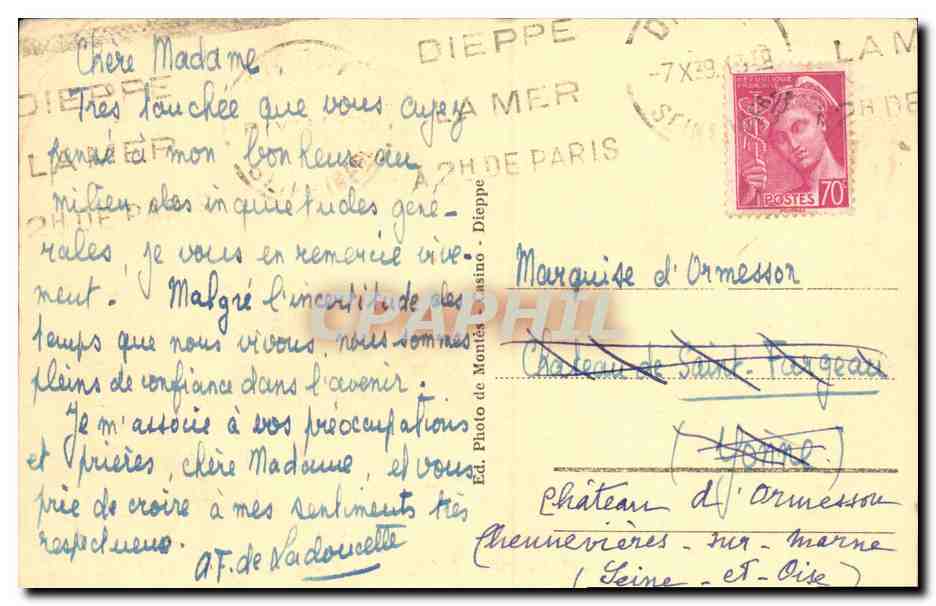 Chère Madame,
Très touchée que vous ayez
pensé à mon bonheur au
milieu des inquiétudes géné-
rales, je vous en remercie vive-
ment. Malgré l'incertitude des
temps que nous vivons, nous sommes
pleins de confiance dans l'avenir.
Je m'associe à vos préoccupations
et prières, chère Madame, et vous
prie de croire à mes sentiments très
respectueux.
A.F. de Ladoucette
DIEPPE
LA MER
2H DE PARIS
DIEPPE
LA MER
A 2H DE PARIS
-7 X 39
LA M
2H DE
RÉPUBLIQUE
FRANÇAISE
POSTES 70c
Ed. Photo de Montès - Casino - Dieppe
CPAPHIL
Marquise d'Ormesson
Château de Saint-Fargeau
(Yonne)
Château d'Ormesson
Chennevières-sur-Marne
(Seine-et-Oise)